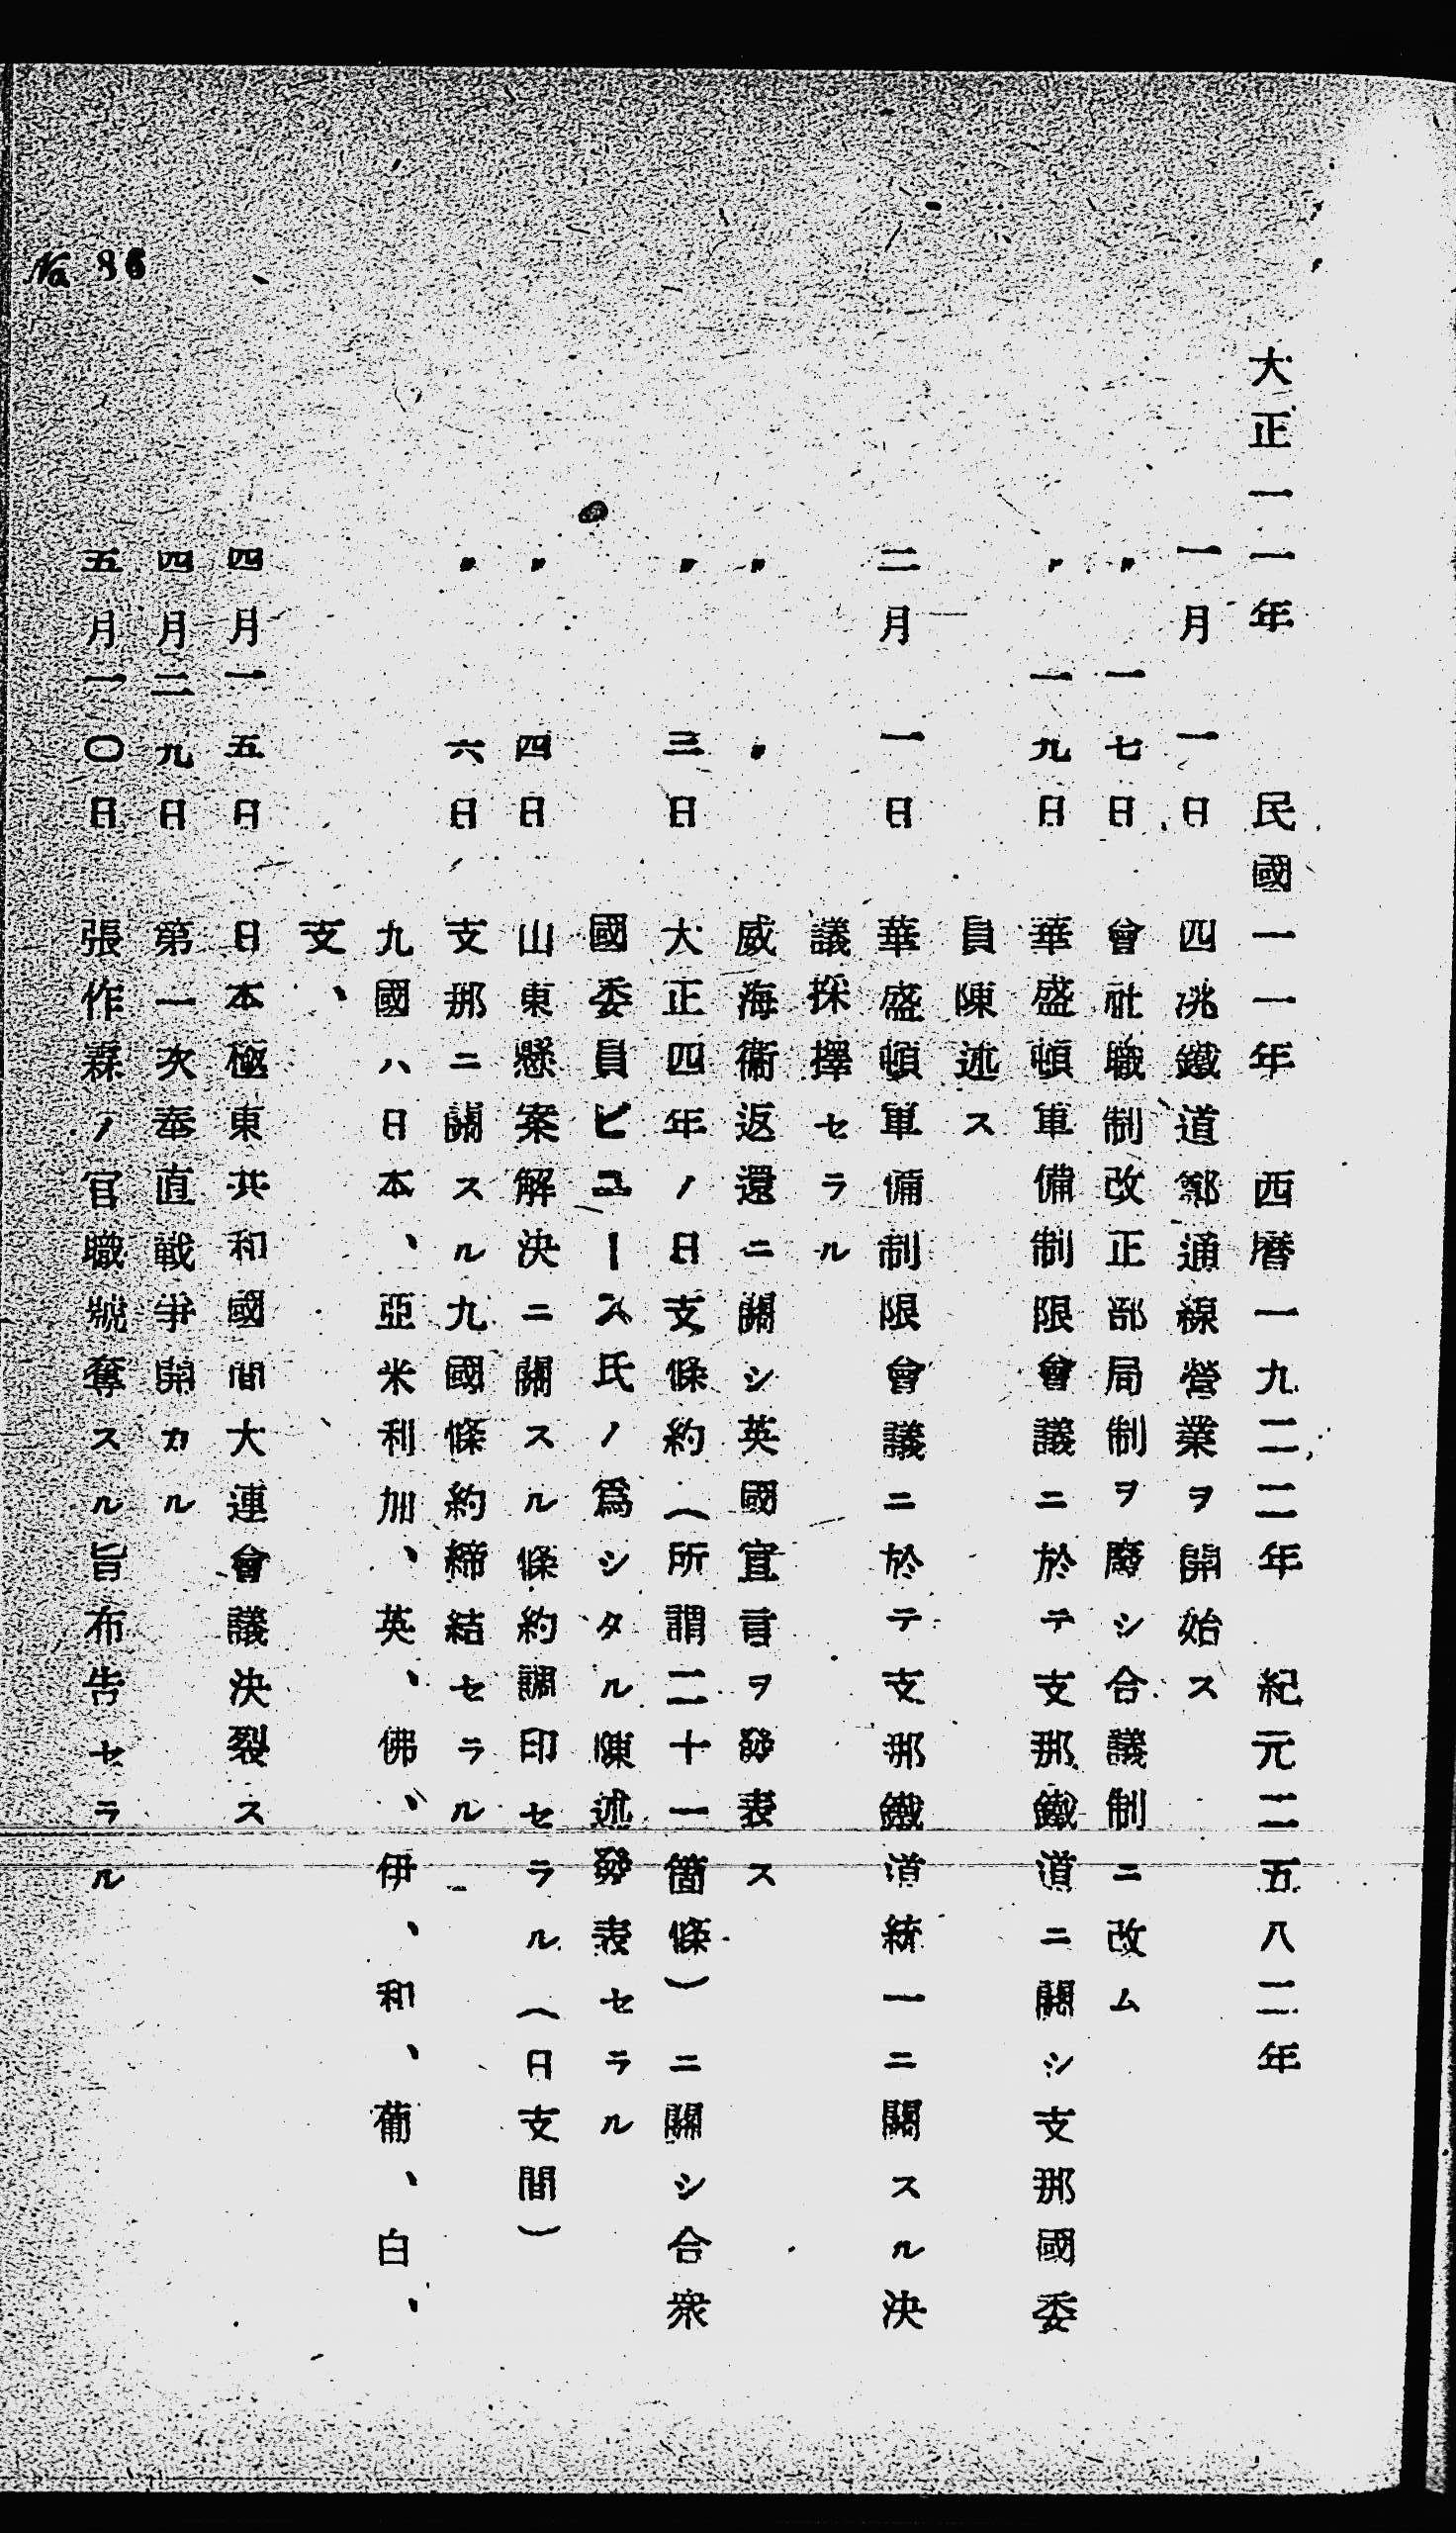 大正一一年 民國一一年 西曆一九二二年 紀元二五八二年
一月 一日 四洮鐵道鄭通線營業ヲ開始ス
〃 一七日 會社職制改正部局制ヲ廢シ合議制ニ改ム
〃 一九日 華盛頓軍備制限會議ニ於テ支那鐵道ニ關シ支那國委
員陳述ス
二月 一日 華盛頓軍備制限會議ニ於テ支那鐵道統一ニ關スル決
議採擇セラル
〃 〃 威海衞返還ニ關シ英國宣言ヲ發表ス
〃 三日 大正四年ノ日支條約(所謂二十一箇條)ニ關シ合衆
國委員ヒユース氏ノ爲シタル陳述發表セラル
〃 四日 山東懸案解決ニ關スル條約調印セラル(日支間)
〃 六日 支那ニ關スル九國條約締結セラル
九國ハ日本、亞米利加、英、佛、伊、和、葡、白、
支、
四月一五日 日本極東共和國間大連會議決裂ス
四月二九日 第一次奉直戰爭開カル
五月一〇日 張作霖ノ官職號奪スル旨布告セラル
No 86